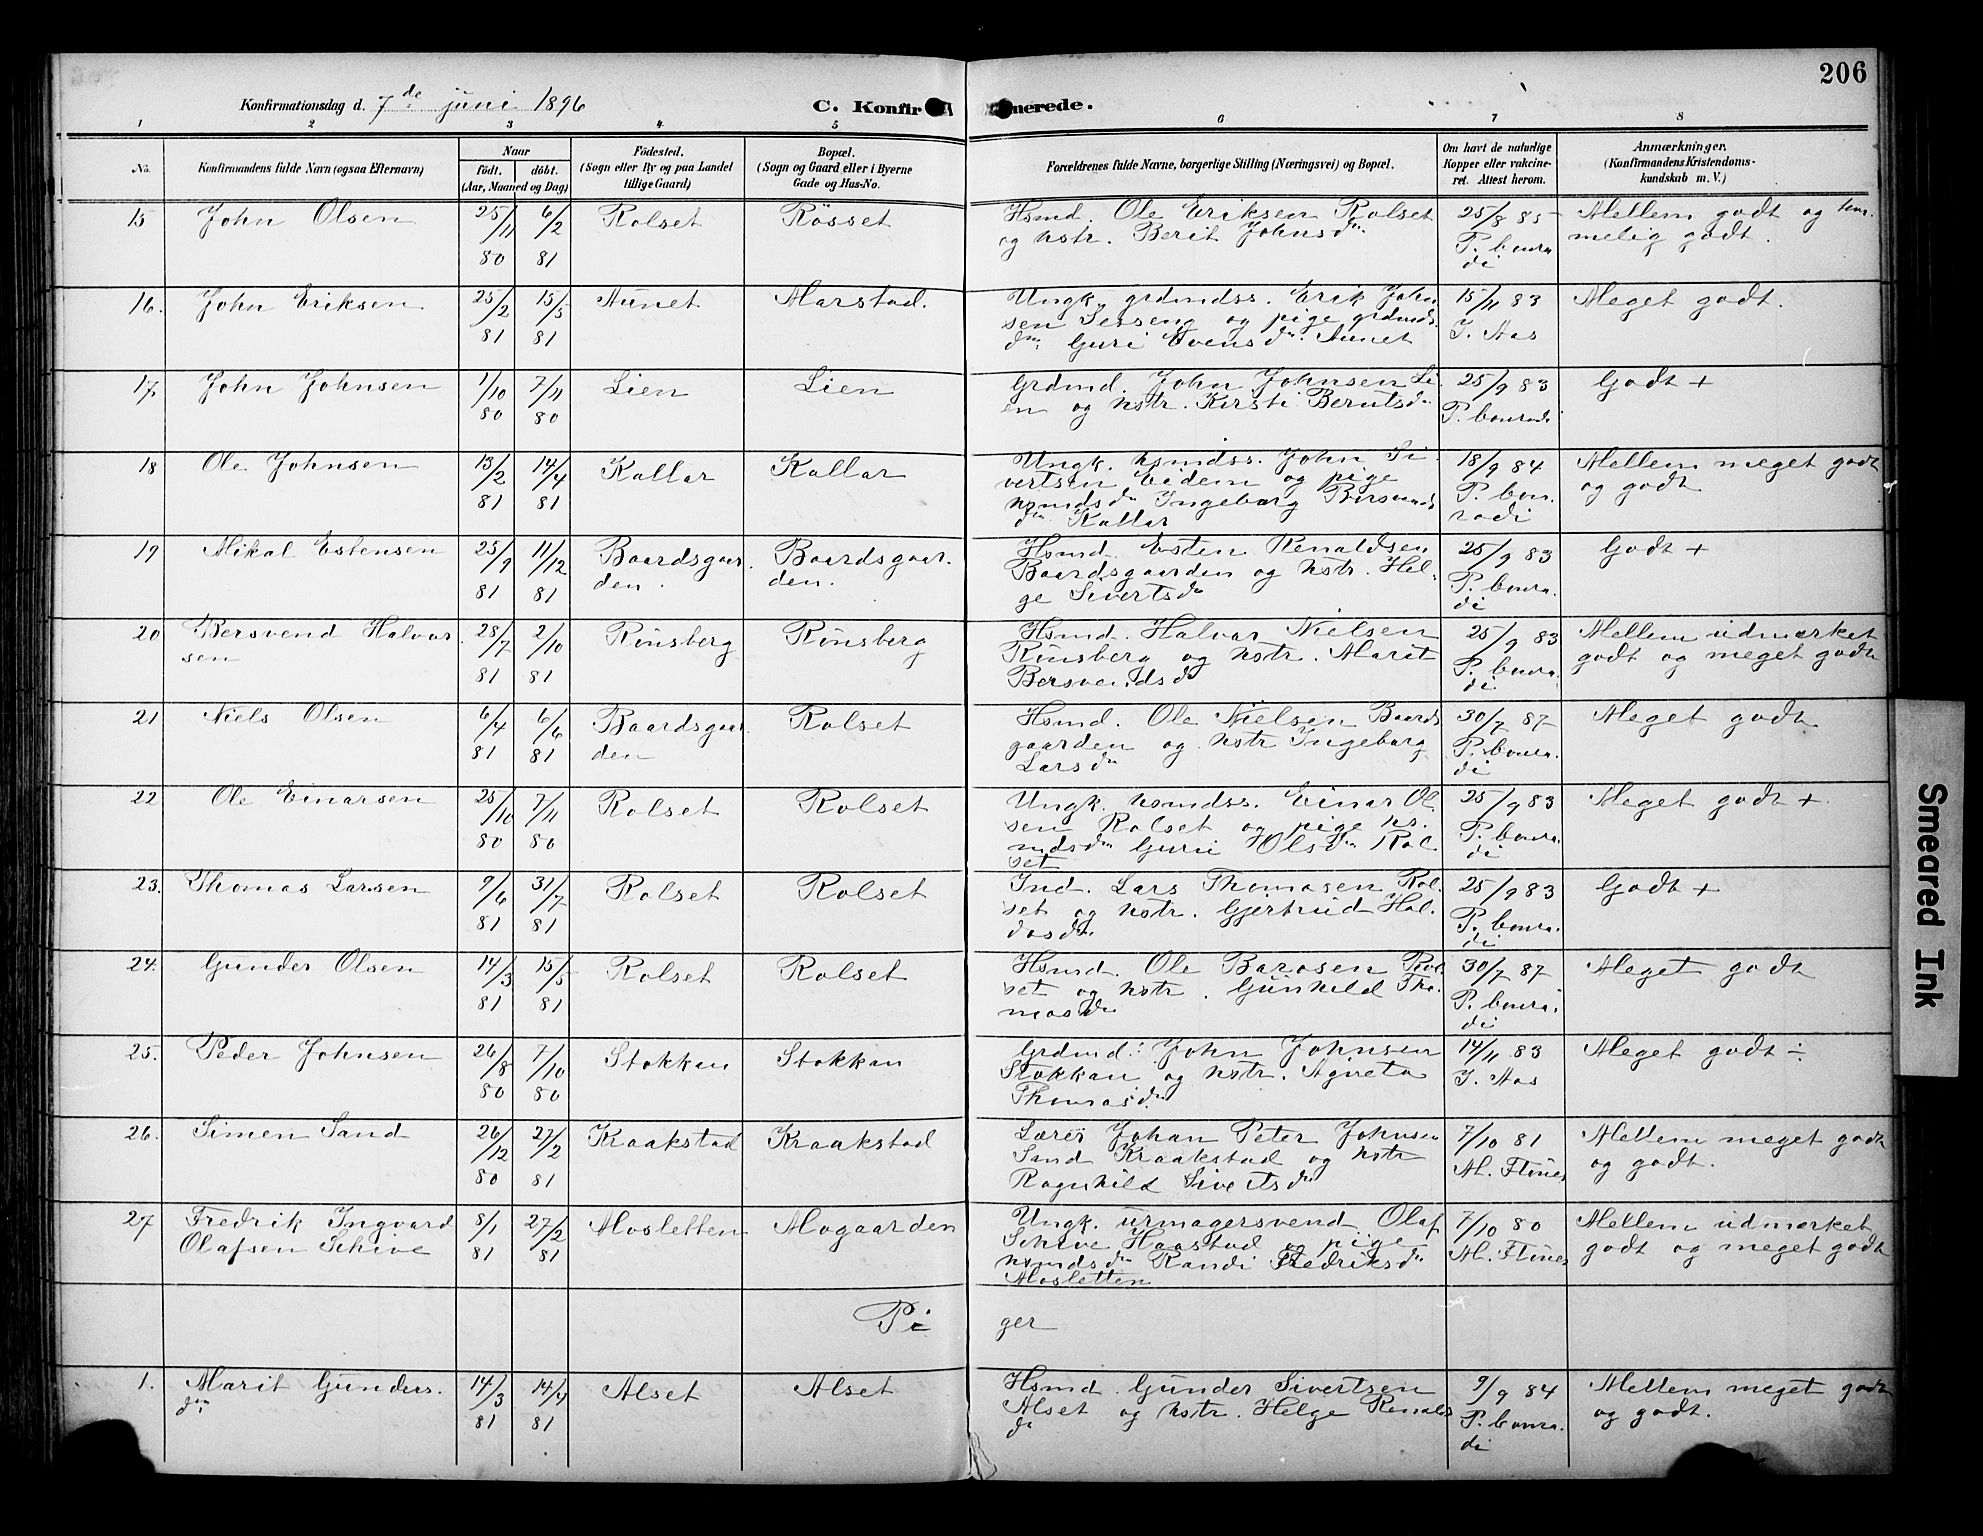 206
Konfirmationsdag d. 7de juni 1896
C. Konfirmerede.
1 2 3 4 5 6 7 8
No. Konfirmandens fulde Navn (ogsaa Efternavn) Naar födt. döbt. (Aar, Maaned og Dag) Födested. (Sogn eller By og paa Landet tillige Gaard) Bopæl. (Sogn og Gaard eller i Byerne Gade og Hus-No. Forældrenes fulde Navne, borgerlige Stilling (Næringsvei) og Bopæl. Om havt de naturlige Kopper eller vakcineret. Attest herom. Anmærkninger. (Konfirmandens Kristendomskundskab m. V.)
15 John Olsen 25/11 80 6/2 81 Rolset Rösset
Hsmd. Ole Eriksen Rolset
og hstr. Berit Johnsdr
25/8 85 P. Conradi
Mellem godt og tem-
melig godt.
16. John Eriksen 25/2 81 15/5 81 Aunet Marstad.
Ungk. grdmdss. Erik John
sen Sesseng og pige grdmds.
dtr. Guri Evensdr. Aunet
15/11 83 J. Aas
Meget godt.
17. John Johnsen 1/10 80 7/11 80 Lien Lien
Grdmd. John Johnsen Li-
en og hstr. Kirsti Berntsdr
25/9 83 P. Conradi
Godt +
18 Ole Johnsen 13/2 81 14/4 81 Kallar Kallar
Ungk. hsmdss. John Si-
vertsen Eidem og pige
hsmdsdr Ingeborg Bersvends
dtr. Kallar
18/9 84 P. Conradi
Mellem meget godt
og godt
19 Mikal Estensen 25/9 81 11/12 81 Baardsgaar-
den. Baardsgaar-
den.
Hsmd. Esten Renaldsen
Baardsgaarden og hstr. Hel-
ge Sivertsdr
25/9 83 P. Conradi
Godt +
20 Bersvend Halvor
sen 28/7 81 2/10 81 Rönsberg Rönsberg
Hsmd. Halvor Nielsen
Rönsberg og hstr. Marit
Bersvendsdr
25/9 83 P. Conradi
Mellem udmerket
godt og meget godt
21 Niels Olsen 6/4 81 6/6 81 Baardsgaar-
den Rolset
Hsmd. Ole Nielsen Baards
gaarden og hstr Ingeborg
Larsdr
30/7 87 P. Conradi
Meget godt
22 Ole Einarsen 25/10 80 7/11 80 Rolset Rolset
Ungk. hsmdss. Einar Ol-
sen Rolset og pige hs-
mdsdr Guru Olsdr Rol-
set
25/9 83 P. Conradi
Meget godt +
23. Thomas Larsen 9/6 81 31/7 81 Rolset Rolset
Ind. Lars Thomasen Rol-
set og hstr. Gjertrud Hal-
dosdr.
25/9 83 P. Conradi
Godt +
24. Gunder Olsen 14/3 81 15/5 81 Rolset Rolset
Hsmd. Ole Barosen Rol-
set og hstr. Gunhild Tho-
masdr
30/7 87 P. Conradi
Meget godt
25. Peder Johnsen 26/8 80 7/10 80 Stokkan Stokkan
Grdmd. John Johnsen
Stokkan og hstr. Agneta
Thomasdr.
14/11 83 J. Aas
Meget godt ÷
26. Simen Sand 26/12 80 27/2 81 Kraakstad Kraakstad
Lærer Johan Peter Johnsen
Sand Kraakstad og hstr
Ragnhild Sivertsdr
7/10 81 M. Flönes
Mellem meget godt
og godt.
27 Fredrik Ingvard
Olafsen Schive 8/1 81 27/2 81 Mosletten Mogaarden
Ungk. urmagersvend Olaf
Schive Haastad og pige
hsmdsdr Randi Fredriksdr
Mosletten
7/10 80 M. Flönes
Mellem udmerket
godt og meget godt
Piger
1. Marit Gunders-
dtr. 14/3 81 14/4 81 Alset Alset
Hsmd. Gunder Sivertsen
Alset og hstr. Helge Renalds
dr
9/9 84 P. Conradi
Mellem meget godt
og godt.
Smeared Ink